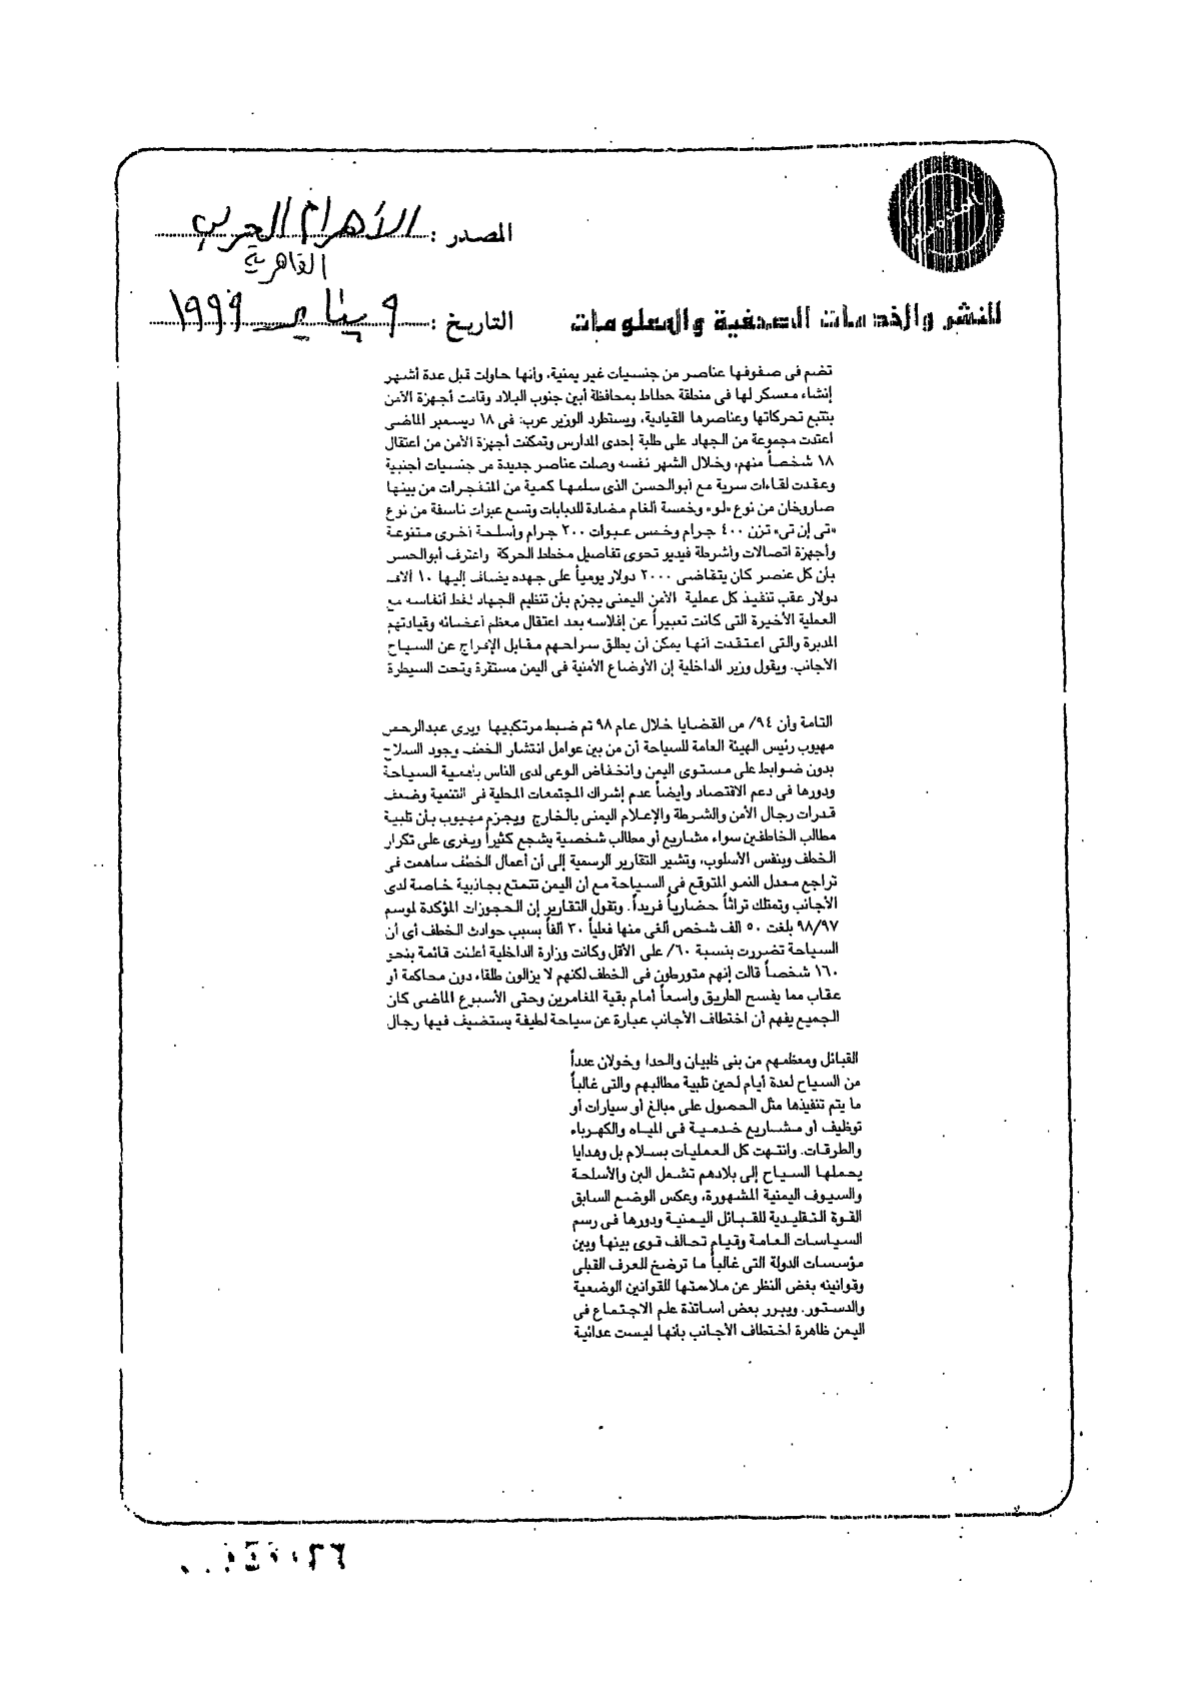 المصدر : الأهرام العربي
القاهرية
التاريخ : ٩ يناير ١٩٩٩
للنشر والخدمات الصحفية والمعلومات
تضم فى صفوفها عناصر من جنسيات غير يمنية، وأنها حاولت قبل عدة أشهر
إنشاء معسكر لها فى منطقة حطاط بمحافظة أبين جنوب البلاد وقامت أجهزة الأمن
بتتبع تحركاتها وعناصرها القيادية، ويستطرد الوزير عرب: فى ١٨ ديسمبر الماضى
اعتدت مجموعة من الجهاد على طلبة إحدى المدارس وتمكنت أجهزة الأمن من اعتقال
١٨ شخصاً منهم، وخلال الشهر نفسه وصلت عناصر جديدة من جنسيات أجنبية
وعقدت لقاءات سرية مع أبوالحسن الذى سلمها كمية من المتفجرات من بينها
صاروخان من نوع «لو» وخمسة ألغام مضادة للدبابات وتسع عبوات ناسفة من نوع
«تى إن تى» تزن ٤٠٠ جرام وخمس عبوات ٢٠٠ جرام وأسلحة أخرى متنوعة
وأجهزة اتصالات وأشرطة فيديو تحوى تفاصيل مخطط الحركة واعترف أبوالحسن
بأن كل عنصر كان يتقاضى ٢٠٠٠ دولار يومياً على جهده يضاف إليها ١٠ آلاف
دولار عقب تنفيذ كل عملية الأمن اليمنى يجزم بأن تنظيم الجهاد لفظ أنفاسه مع
العملية الأخيرة التى كانت تعبيراً عن إفلاسه بعد اعتقال معظم أعضائه وقيادتهم
المدبرة والتى اعتقدت أنها يمكن أن يطلق سراحهم مقابل الإفراج عن السياح
الأجانب. ويقول وزير الداخلية إن الأوضاع الأمنية فى اليمن مستقرة وتحت السيطرة
التامة وأن ٩٤/ من القضايا خلال عام ٩٨ تم ضبط مرتكبيها ويرى عبدالرحمن
مهيوب رئيس الهيئة العامة للسياحة أن من بين عوامل انتشار الخطف وجود السلاح
بدون ضوابط على مستوى اليمن وانخفاض الوعى لدى الناس بأهمية السياحة
ودورها فى دعم الاقتصاد وأيضاً عدم إشراك المجتمعات المحلية فى التنمية وضعف
قدرات رجال الأمن والشرطة والإعلام اليمنى بالخارج ويجزم مهيوب بأن تلبية
مطالب الخاطفين سواء مشاريع أو مطالب شخصية يشجع كثيراً ويغرى على تكرار
الخطف وبنفس الأسلوب، وتشير التقارير الرسمية إلى أن أعمال الخطف ساهمت فى
تراجع معدل النمو المتوقع فى السياحة مع أن اليمن تتمتع بجاذبية خاصة لدى
الأجانب وتمتلك تراثاً حضارياً فريداً. وتقول التقارير إن الحجوزات المؤكدة لموسم
٩٨/٩٧ بلغت ٥٠ الف شخص ألغى منها فعلياً ٣٠ ألفاً بسبب حوادث الخطف أى أن
السياحة تضررت بنسبة ٦٠/ على الأقل وكانت وزارة الداخلية أعلنت قائمة بنحو
١٦٠ شخصاً قالت إنهم متورطون فى الخطف لكنهم لا يزالون طلقاء دون محاكمة أو
عقاب مما يفسح الطريق واسعاً أمام بقية المغامرين وحتى الأسبوع الماضى كان
الجميع يفهم أن اختطاف الأجانب عبارة عن سياحة لطيفة يستضيف فيها رجال
القبائل ومعظمهم من بنى ظبيان والحدا وخولان عدداً
من السياح لعدة أيام لحين تلبية مطالبهم والتى غالباً
ما يتم تنفيذها مثل الحصول على مبالغ أو سيارات أو
توظيف أو مشاريع خدمية فى المياه والكهرباء
والطرقات. وانتهت كل العمليات بسلام بل وهدايا
يحملها السياح إلى بلادهم تشمل البن والأسلحة
والسيوف اليمنية المشهورة، وعكس الوضع السابق
القوة التقليدية للقبائل اليمنية ودورها فى رسم
السياسات العامة وقيام تحالف قوى بينها وبين
مؤسسات الدولة التى غالباً ما ترضخ للعرف القبلى
وقوانينه بغض النظر عن ملاءمتها للقوانين الوضعية
والدستور. ويبرر بعض أساتذة علم الاجتماع فى
اليمن ظاهرة اختطاف الأجانب بأنها ليست عدائية